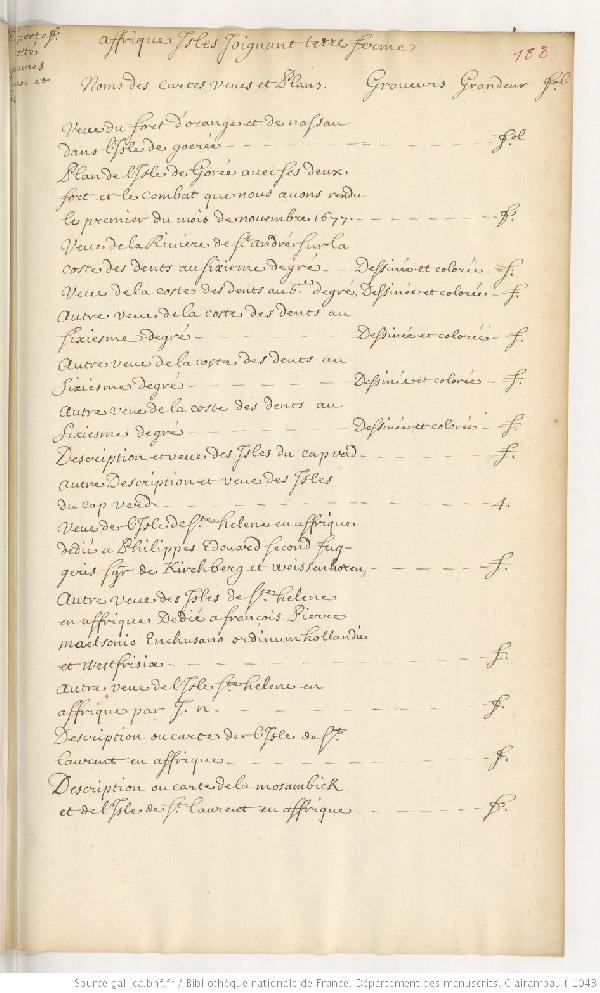 affrique Isles Joignant terre ferme
188
Noms des cartes veues et Plans. Graveurs Grandeur fol.
Veue du fort d'orange et de nassau
dans l'Isle de goerée - fol
Plan de l'Isle de Gorée avec ses deux
fort et le combat que nous avons rendu
le premier du mois de novembre 1677. - fo.
Veue de la Riviere de St. andré sur la
coste des dents au sixieme degré - Dessinée et colorie - f.
Veue de la coste des dents au 6.e degré, Dessinée et colorée - f.
Autre veue de la coste des dents au
sixiesme degré - Dessinée et colorée - f.
Autre veue de la coste des dents au
sixiesme degré - Dessinée et colorée - f.
Autre veue de la coste des dents au
sixiesme degré - Dessinée et colorée - f.
Description et veue des Isles du cap verd - f.
autre Description et veue des Isles
du cap verd - 4.
Veue de l'Isle de Ste. helene en affrique
dedié a Philippes Edouard second fug-
geris sgr de Kirchberg et weissenhoren, - f.
Autre veue des Isles de Ste. helene
en affrique Dedié a françois Pierre
maelsonio Enchusano ordinum hollandiæ
et westfrisiæ - f.
Autre veue de l'Isle Ste. helene en
affrique par J. n. - f.
Description ou carte de l'Isle de St.
laurent en affrique - f.
Description ou carte de la mosambick
et de l'Isle de St. laurent en affrique - fo.
Source gallica.bnf.fr / Bibliothèque nationale de France. Département des manuscrits. Clairambault 1043